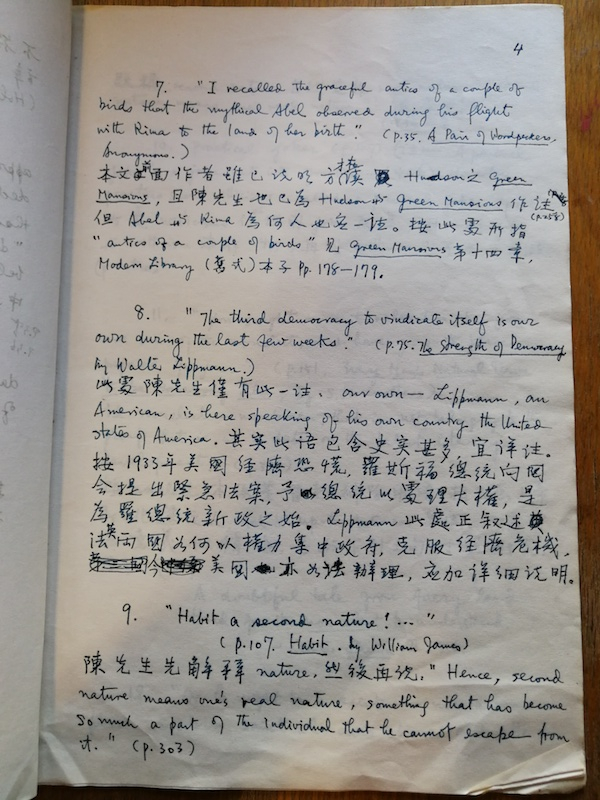 4
7. "I recalled the graceful antics of a couple of
birds that the mythical Abel observed during his flight
with Rima to the land of her birth." (p.35. A Pair of Woodpeckers,
Anonymous.)
本文前面作者雖已說明方才讀 Hudson之 Green
Mansions, 且陳先生也已為 Hudson 的 Green Mansions 作注
但 Abel 与 Rima 為何人也宜一註。按此處所指
"antics of a couple of birds" 見 Green Mansions 第十四章,
Modern Library (舊式)本子 pp. 178—179.
8. "The third democracy to vindicate itself is our
own during the last few weeks." (p.75. The Strength of Democracy
by Walter Lippmann.)
此處陳先生僅有此一注. our own — Lippmann, an
American, is here speaking of his own country the United
States of America. 其实此语包含史实甚多, 宜详注。
按 1933年美國經濟恐慌, 羅斯福總統向國
会提出緊急法案, 予總統以處理大權, 是
為羅總統新政之始。 Lippmann 此處正叙述
法英兩國如何以權力集中政府, 克服經濟危機,
今美國亦如法辦理, 应加详细说明。
9. "Habit a second nature! ... "
(p.107. Habit. by William James)
陳先生先解释 nature, 然後再说, "Hence, second
nature means one's real nature, something that has become
so much a part of the individual that he cannot escape from
it." (p.303)